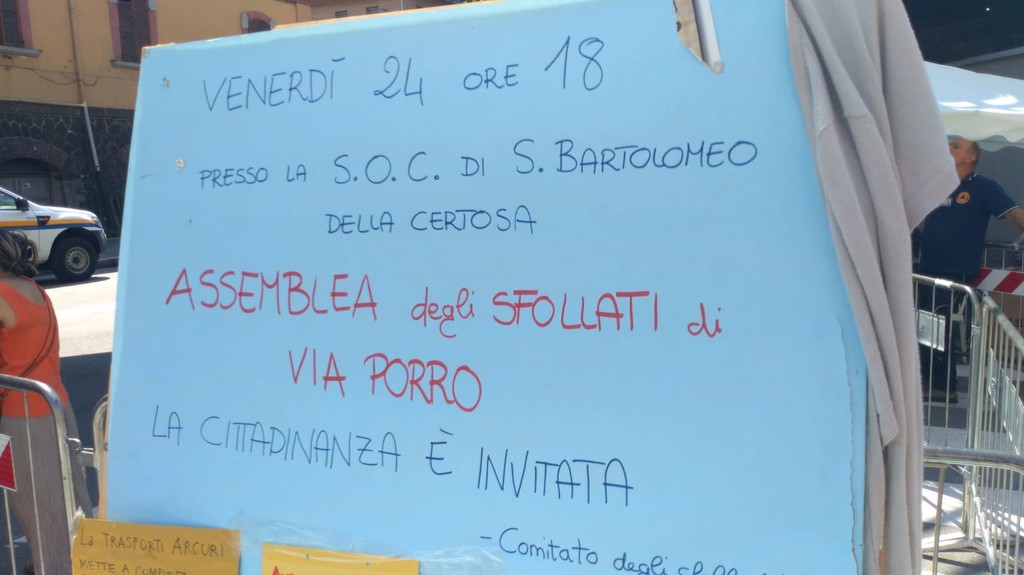 VENERDÌ 24 ORE 18
PRESSO LA S.O.C. DI S. BARTOLOMEO
DELLA CERTOSA
ASSEMBLEA degli SFOLLATI di
VIA PORRO
LA CITTADINANZA È INVITATA
- Comitato degli
La TRASPORTI ARCURI
METTE A